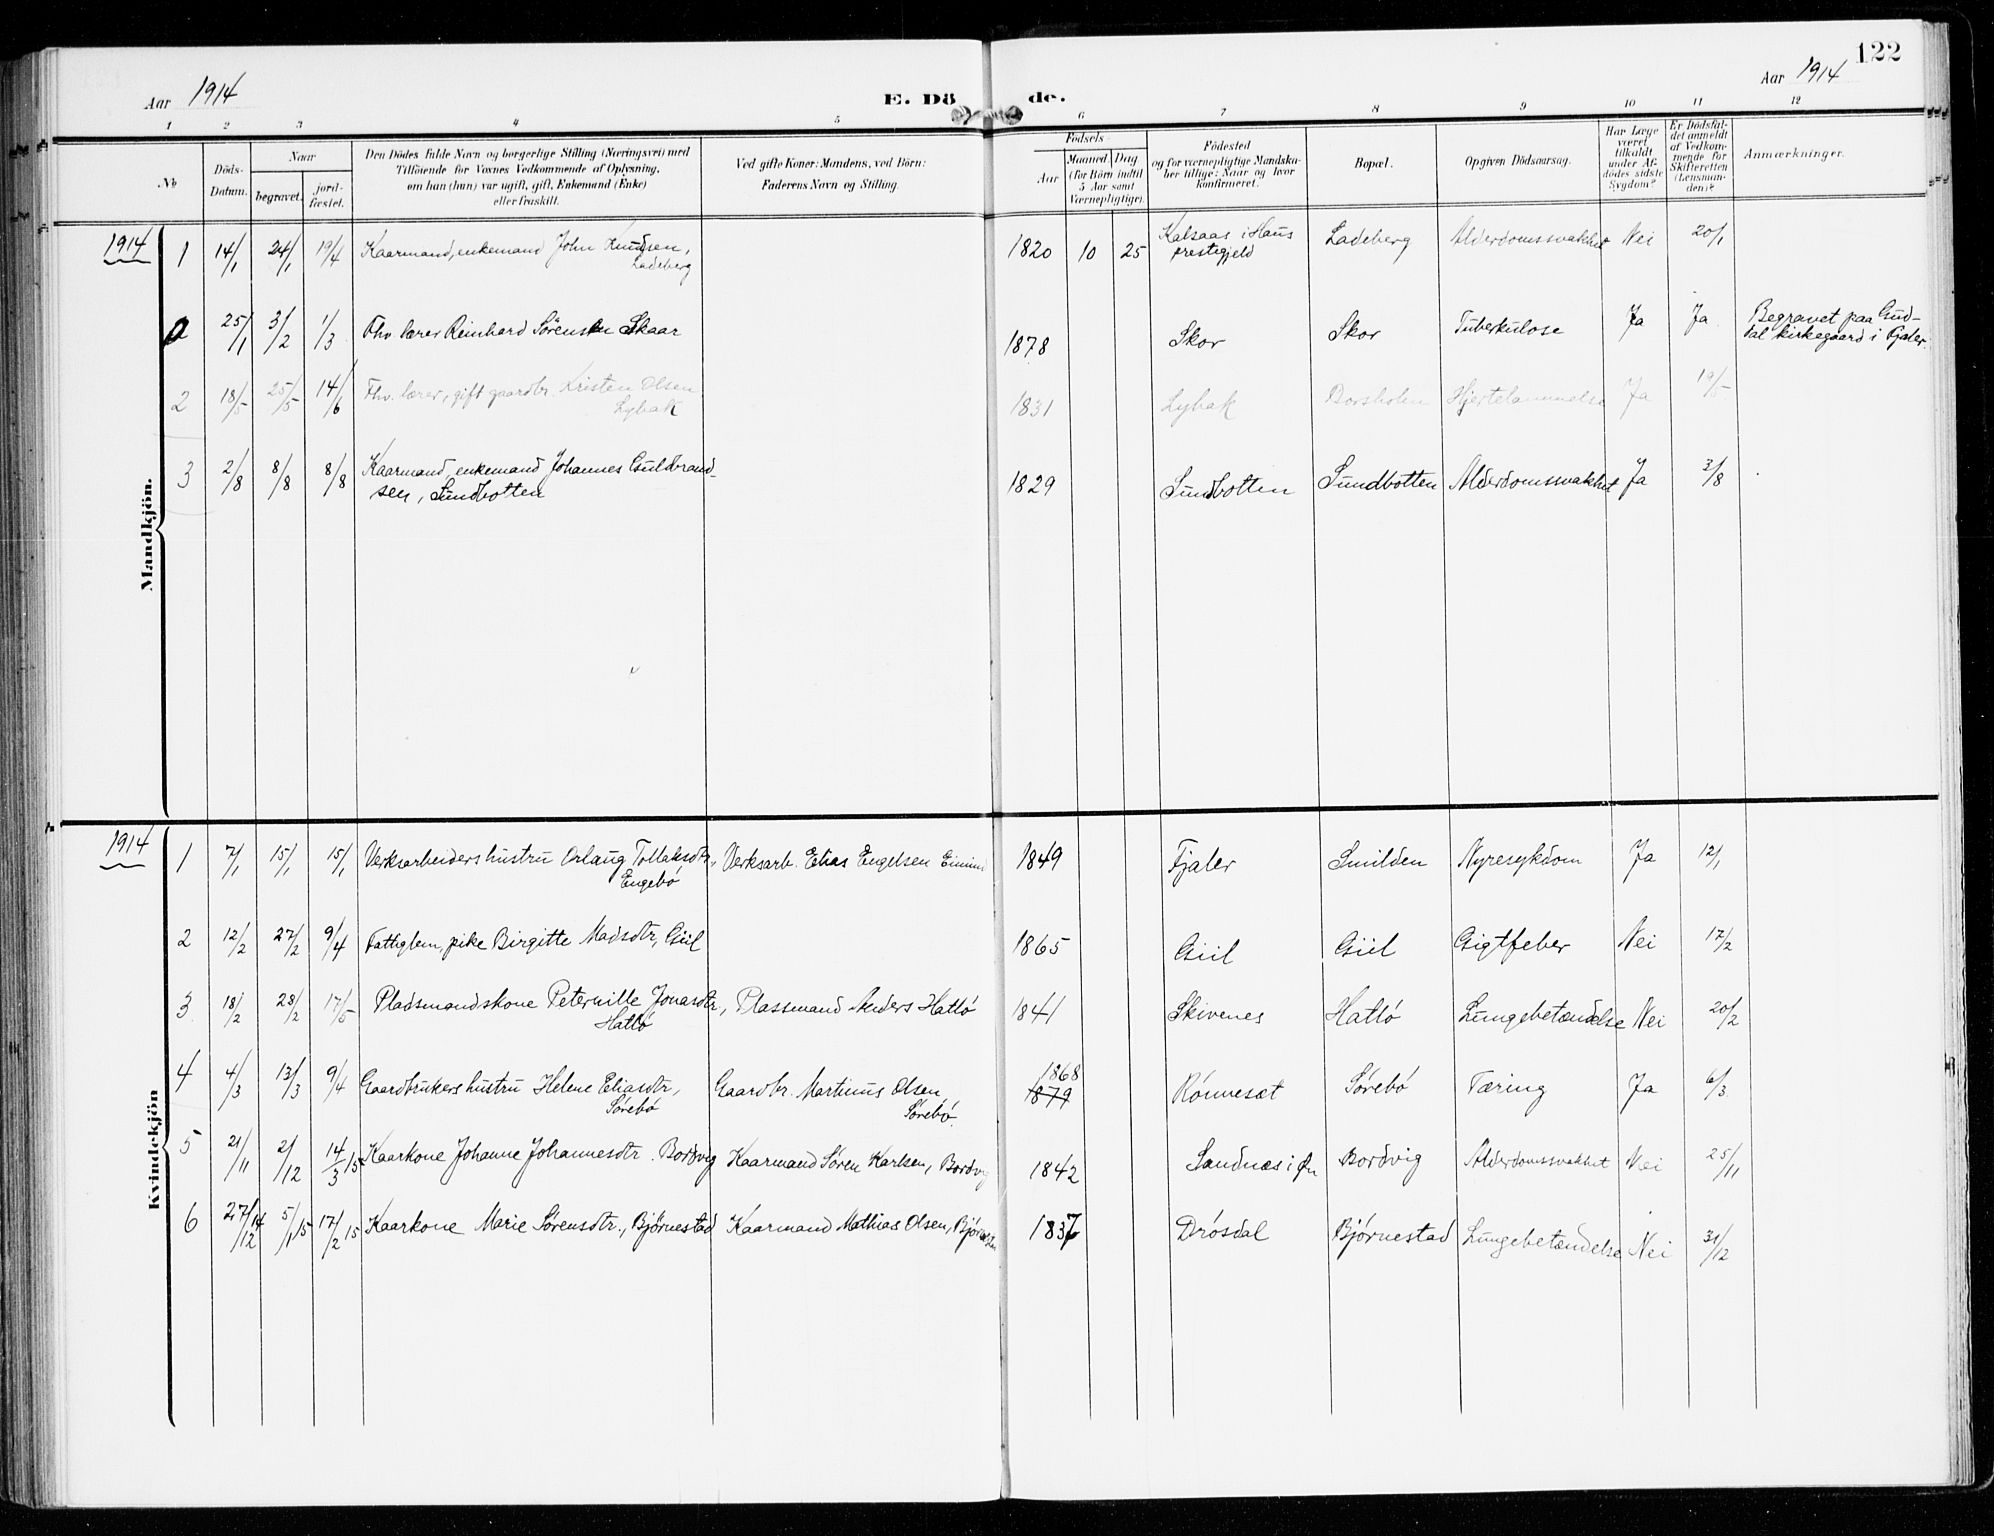 122
Aar 1914
E. Dö de.
Aar 1914
1 2 3 4 5 6 7 8 9 10 11 12
No
Döds-
Datum.
Naar
begravet.
jord-
fæstet.
Den Dödes fulde Navn og borgerlige Stilling (Næringsvei) med
Tilföiende for Voxnes Vedkommende af Oplysning,
om han (hun) var ugift, gift, Enkemand (Enke)
eller fraskilt.
Ved gifte Koner: Mandens, ved Börn:
Faderens Navn og Stilling.
Födsels-
Aar
Maaned Dag
(for Börn indtil
5 Aar samt
Værnepligtige).
Födested
og for værnepligtige Mandska-
ber tillige: Naar og hvor
konfirmeret.
Bopæl.
Opgiven Dödsaarsag.
Har Læge
været
tilkaldt
under Af-
dödes sidste
Sygdom?
Er Dödsfal-
det anmeldt
af Vedkom-
mende for
Skifteretten
(Lensman-
den)?
Anmærkninger.
Mandkjön.
1914 1 14/1 24/1 19/4 Kaarmand, enkemand John Knudsen,
Ladeberg
1820 10 25 Kalsaas i Haus
prestegjeld
Ladeberg Alderdomssvakhet Nei 20/1
0 25/1 3/2 1/3 Fhv. lærer Reinhard Sörensen Skaar 1878 Skor Skor Tuberkulose Ja Ja Begravet paa Gud-
dal kirkegaard i Fjaler.
2 18/5 25/5 14/6 Fhv. lærer, gift gaardbr. Kristen Olsen
Lybak
1831 Lybak Borsholm Hjertelammelse Ja 19/5
3 2/8 8/8 8/8 Kaarmand, enkemand Johannes Guldbrand-
sen, Sundbotten
1829 Sundbotten Sundbotten Alderdomssvakhet Ja 3/8
Kvindekjön
1914 1 7/1 15/1 15/1 Verksarbeiders hustru Orlaug Tollaksdtr.,
Engebø
Verksarb. Elias Engelsen 1849 Fjaler Smilden Nyresykdom Ja 12/1
2 12/2 27/2 9/4 Fattiglem, pike Birgitte Madsdtr, Giil 1865 Giil Giil Gigtfeber Nei 17/2
3 18/2 28/2 17/5 Pladsmandskone Peternille Jonasdtr,
Hatlø
Plassmand Anders Hatlø 1841 Skivenes Hatlø Lungebetændelse Nei 20/2
4 4/3 13/3 9/4 Gaardbrukers hustru Helene Eliasdtr,
Sørebø
Gaardbr. Martinus Olsen
Sørebø.
1868
1879
Rønnesæt Sørebø Tæring Ja 6/3
5 21/11 2/12 14/3 15 Kaarkone Johanne Johannesdtr. Bordvig Kaarmand Søren Karlsen, Bordvig 1842 Sandnes i Bordvig Alderdomssvakhet Nei 25/11
6 27/12 14 5/1 15 17/2 15 Kaarkone Marie Sørensdtr., Bjørnestad Kaarmand Mathias Olsen, 1837 Drøsdal Bjørnestad Lungebetændelse Nei 31/12